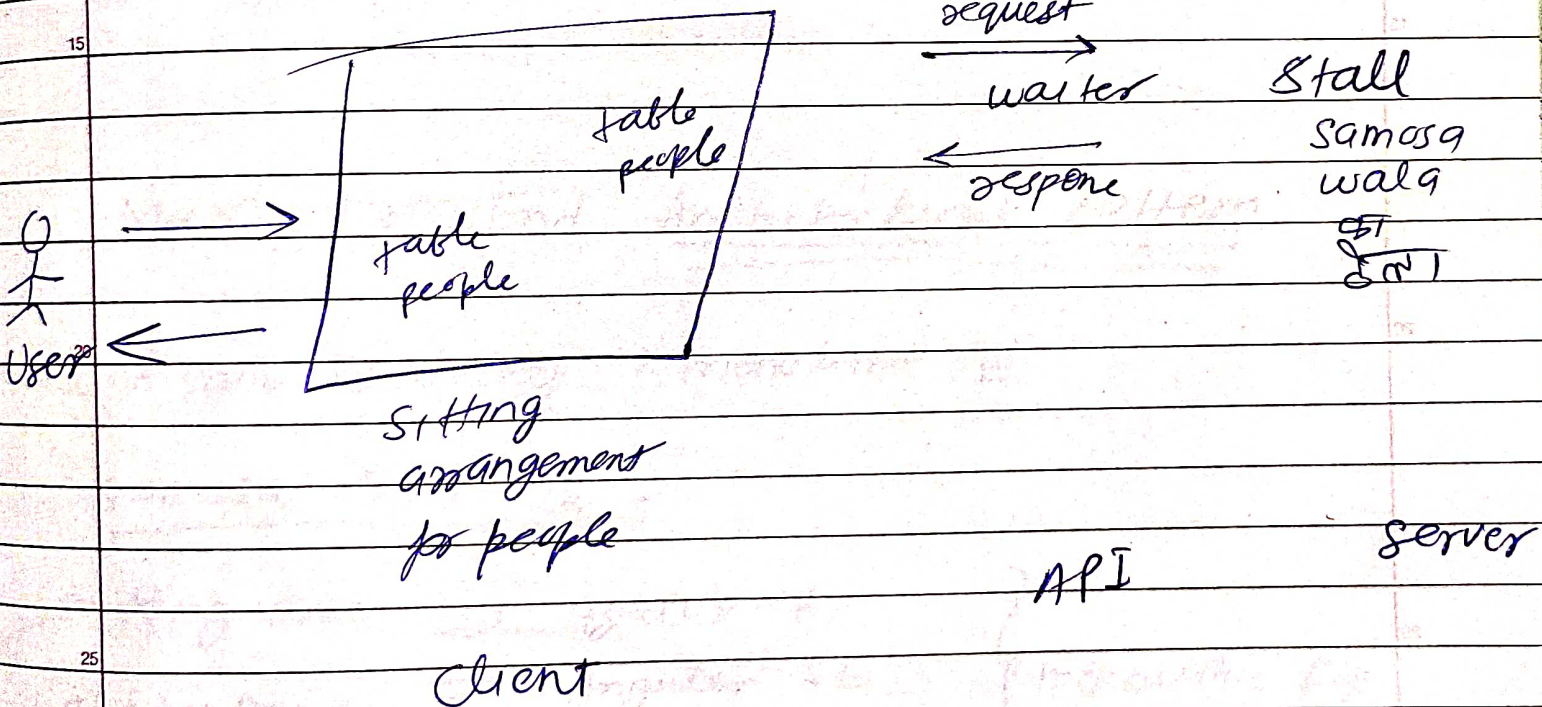 request
15
waiter
Stall
table
people
samosa
wala
respone
का
table
people
User
20
Sitting
arrangement
for people
API
server
25
Client